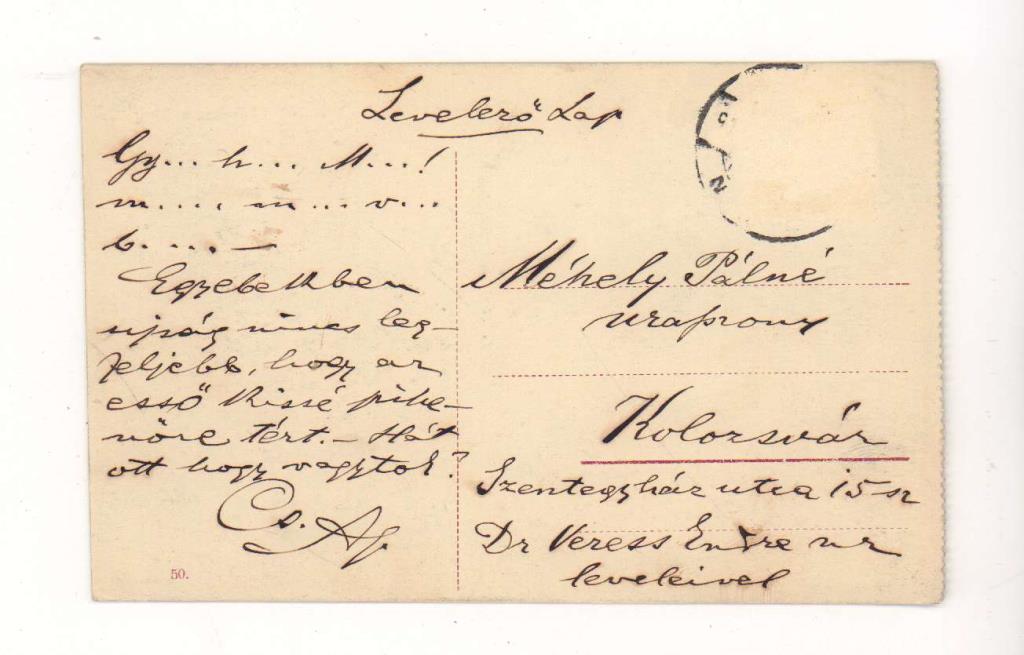 Levelező Lap
Gy... h... M...!
m.... m... v...
b.... —
Egyebekben
ujság nincs leg-
feljebb, hogy az
esső kissé pihe-
nőre tért. - Hát
ott hogy vagytok?
Cs. Ap.
50.
Méhely Pálné
uraszony
Kolozsvár
Szentegyház utca 15 sz
Dr Veress Endre ur
leveleivel